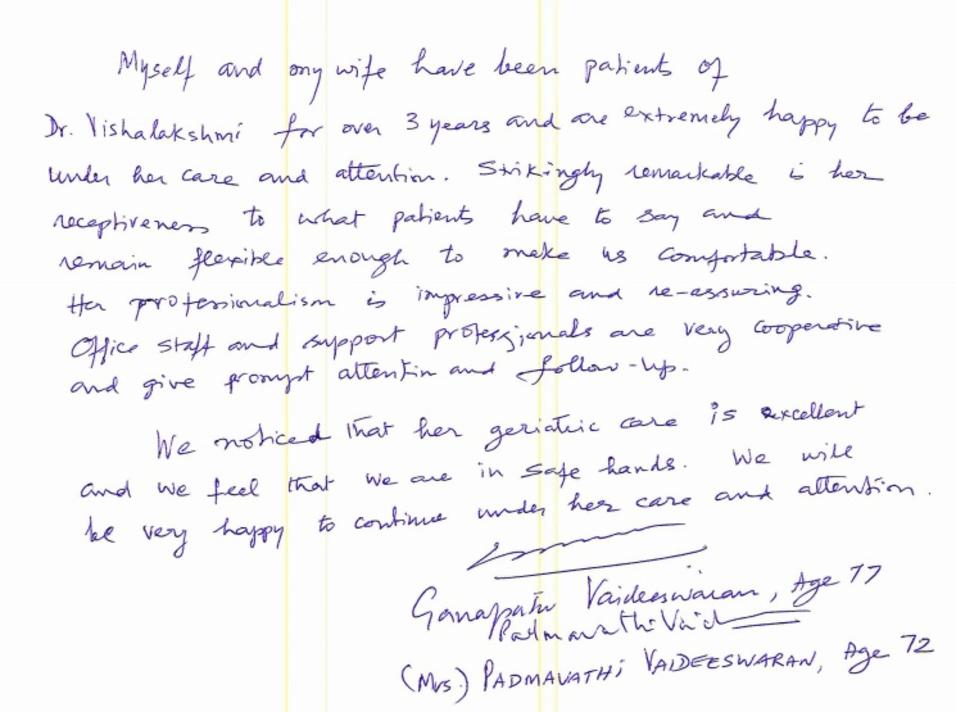 Myself and my wife have been patients of
Dr. Vishalakshmi for over 3 years and are extremely happy to be
under her care and attention. Strikingly remarkable is her
receptiveness to what patients have to say and
remain flexible enough to make us comfortable.
Her professionalism is impressive and re-assuring.
Office staff and support professionals are very cooperative
and give prompt attention and follow-up.
We noticed that her geriatric care is excellent
and we feel that we are in safe hands. We will
be very happy to continue under her care and attention.
Ganapathi Vaideeswaran, Age 77
Padmavathi Vaid
(Mrs.) PADMAVATHI VAIDEESWARAN, Age 72